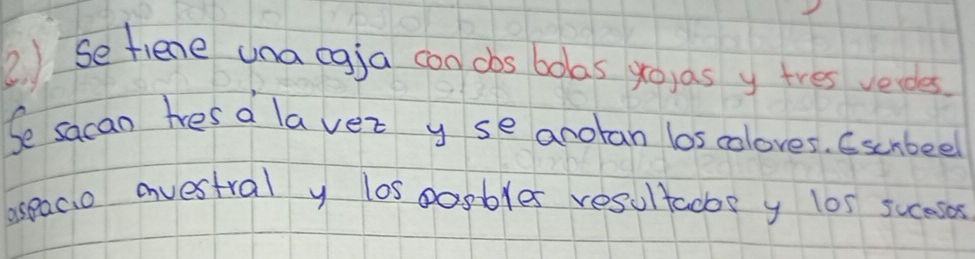 2.) Se tiene una caja con dos bolas rojas y tres verdes.
Se sacan tres a la vez y se anotan los colores. Escribe el
espacio muestral y los posibles resultados y los sucesos